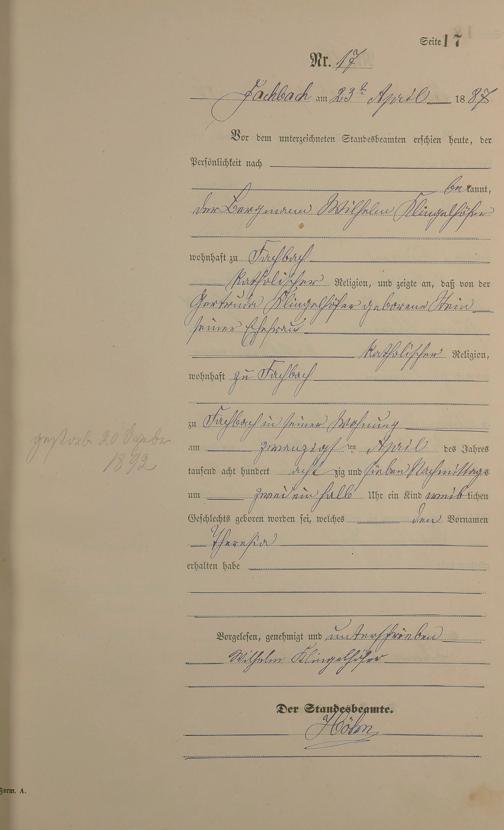 Seite 17
Nr. 17
Fachbach am 23t April 1887
Vor dem unterzeichneten Standesbeamten erschien heute, der
Persönlichkeit nach
be kannt,
der Bergmann Wilhelm Klingelhöfer
wohnhaft zu Fachbach
katholischer Religion, und zeigte an, daß von der
Gertruda Klingelhöfer geborene Stein
seiner Ehefrau
katholischer Religion,
wohnhaft zu Fachbach
zu Fachbach in seiner Wohnung
am zwanzigsten April des Jahres
gestorb 20
1892
tausend acht hundert acht zig und sieben Nachmittags
um zwei ein halb Uhr ein Kind weib lichen
Geschlechts geboren worden sei, welches den Vornamen
Theresia
erhalten habe
Vorgelesen, genehmigt und unterschrieben
Wilhelm Klingelhöfer
Der Standesbeamte.
Höhn
Form. A.